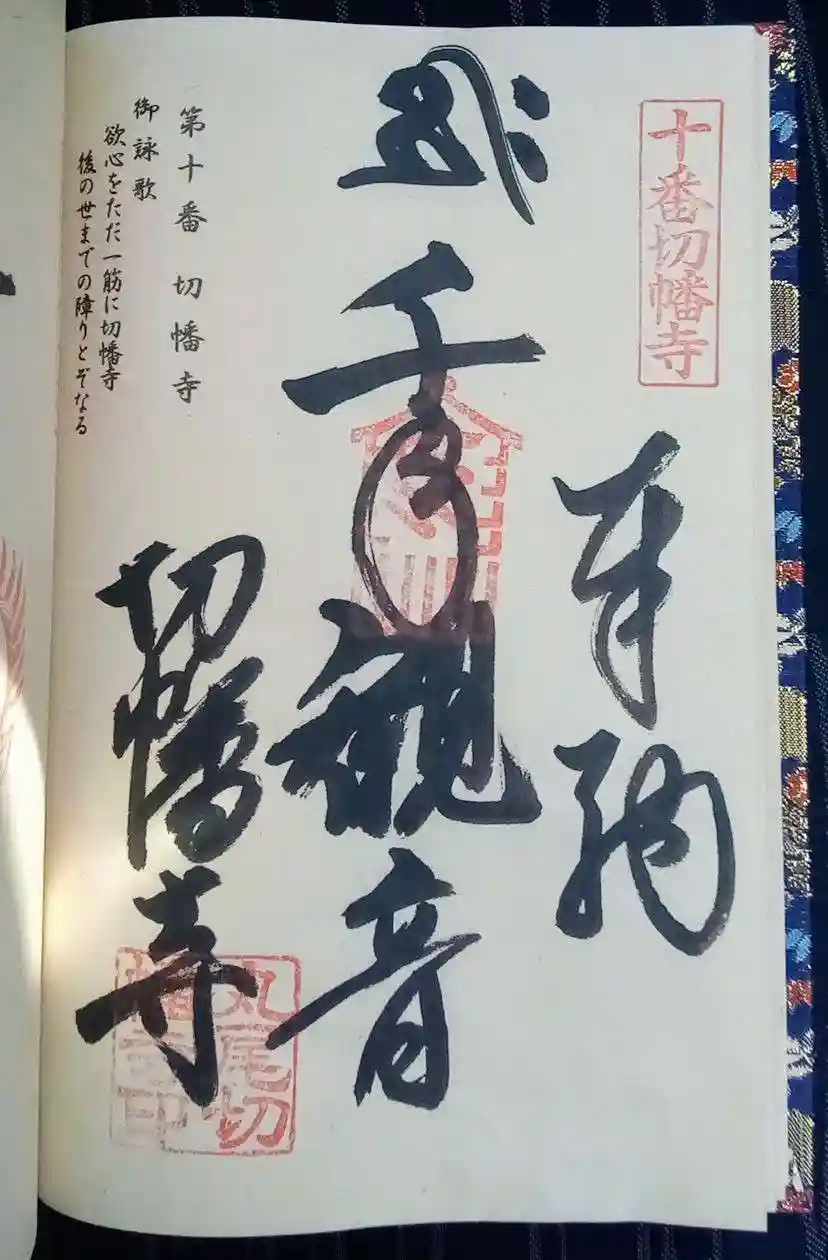 十番切幡寺
奉納
千手観音
切幡寺
丸尾切
幡寺印
第十番 切幡寺
御詠歌
欲心をただ一筋に切幡寺
後の世までの障りとぞなる